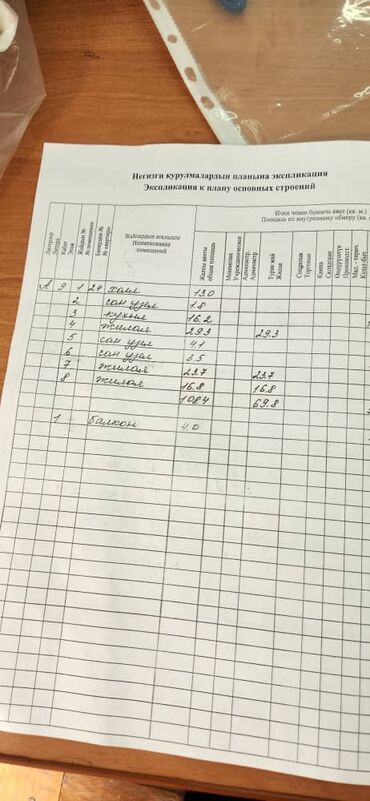 Негизги курулмалардын планына экспликация
Экспликация к плану основных строений
Ички ченөө боюнча аянт (кв. м.)
Площадь по внутреннему обмеру (кв.
Литерлер
Литера
Кабат
Этаж
Жайдын №
№ помещения
Батирдин №
№ квартиры
Жайлардын аталышы
Наименования помещений
Жалпы аянты
общая площадь
Мекемелик
Учрежденческие
Админстр.
Админстр.
Турак жай
Жилая
Соодалык
Торговые
Кампа
Складские
Өндүрүштүк
Производст.
Мад. - тирич.
Культ-быт.
А 9 1 24 холл 13.0
2 сан узел 1.8
3 кухня 16.2
4 жилая 29.3 29.3
5 сан узел 4.1
6 сан узел 3.5
7 жилая 23.7 23.7
8 жилая 16.8 16.8
108.4 69.8
1 балкон 4.0